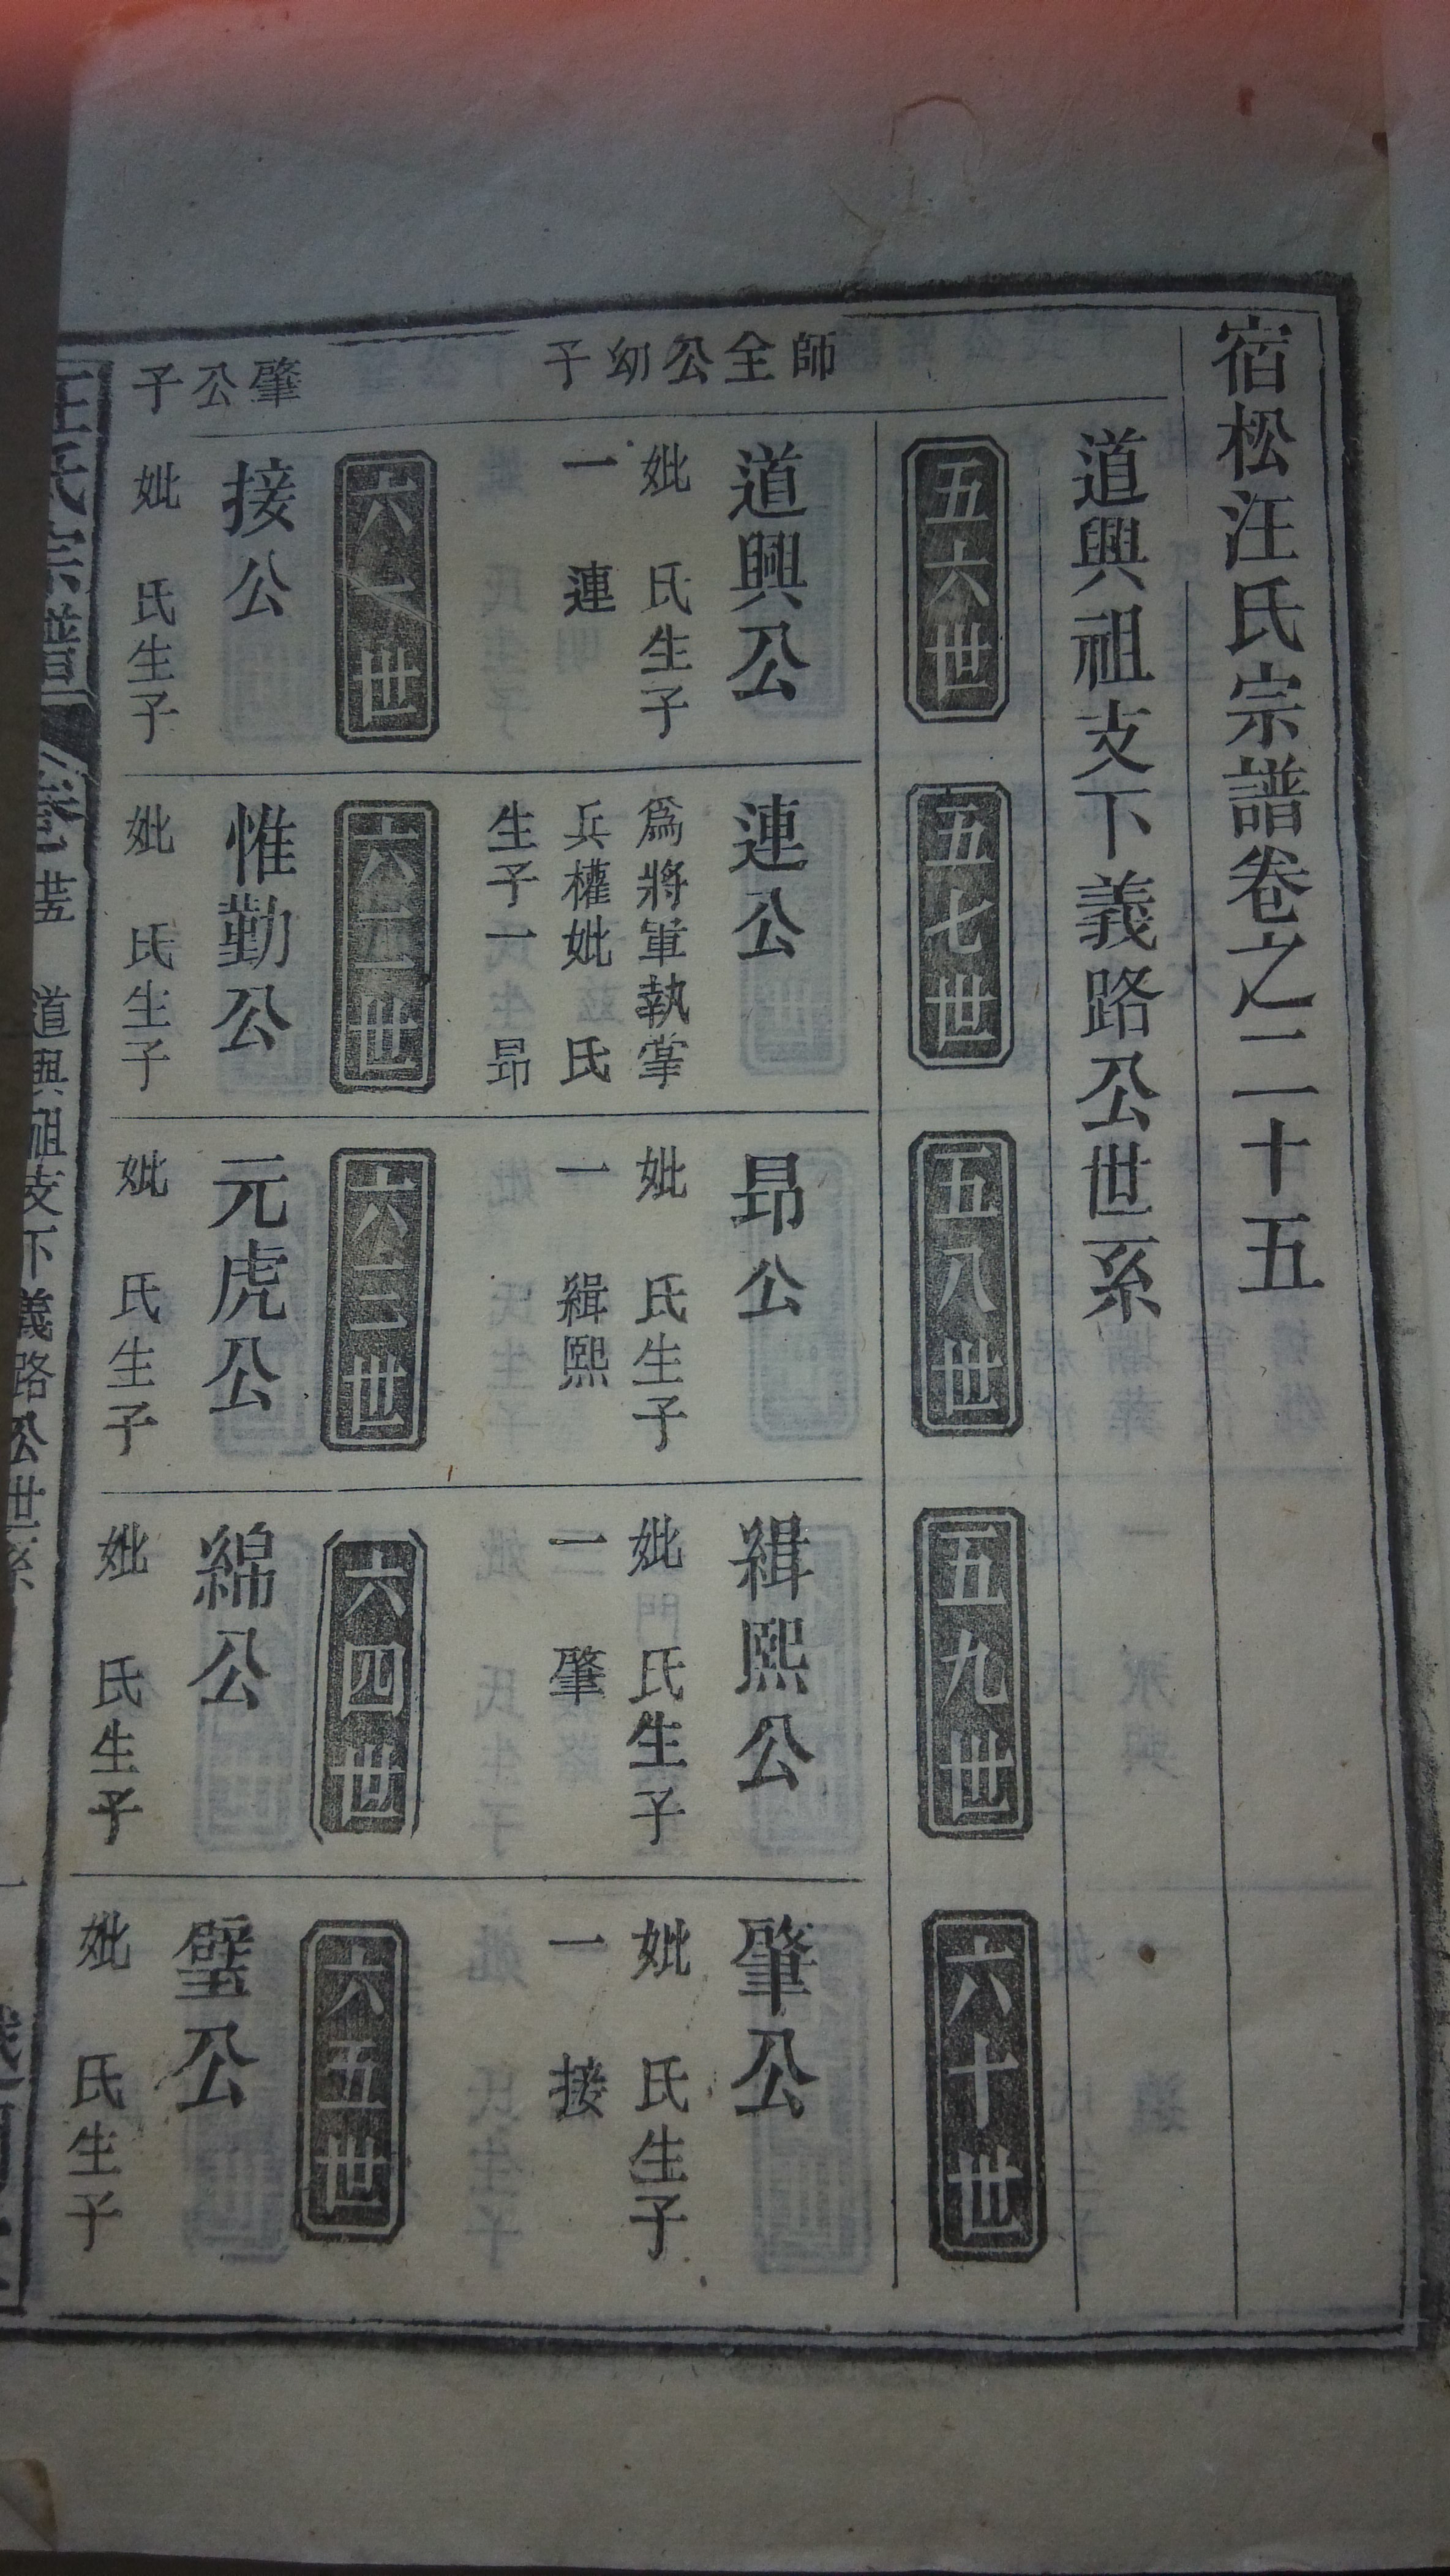 宿松汪氏宗譜卷之二十五
道興祖支下義路公世系
五六世
五七世
五八世
五九世
六十世
師全公幼子
道興公
妣　氏生子
一　連
連公
爲將軍執掌
兵權妣　氏
生子一　昂
昂公
妣　氏生子
一　緝熙
緝熙公
妣　氏生子
二　肇
肇公
妣　氏生子
一　接
六一世
六二世
六三世
六四世
六五世
肇公子
接公
妣　氏生子
惟勤公
妣　氏生子
元虎公
妣　氏生子
綿公
妣　氏生子
璧公
妣　氏生子
汪氏宗譜
道興祖支下義路公世系